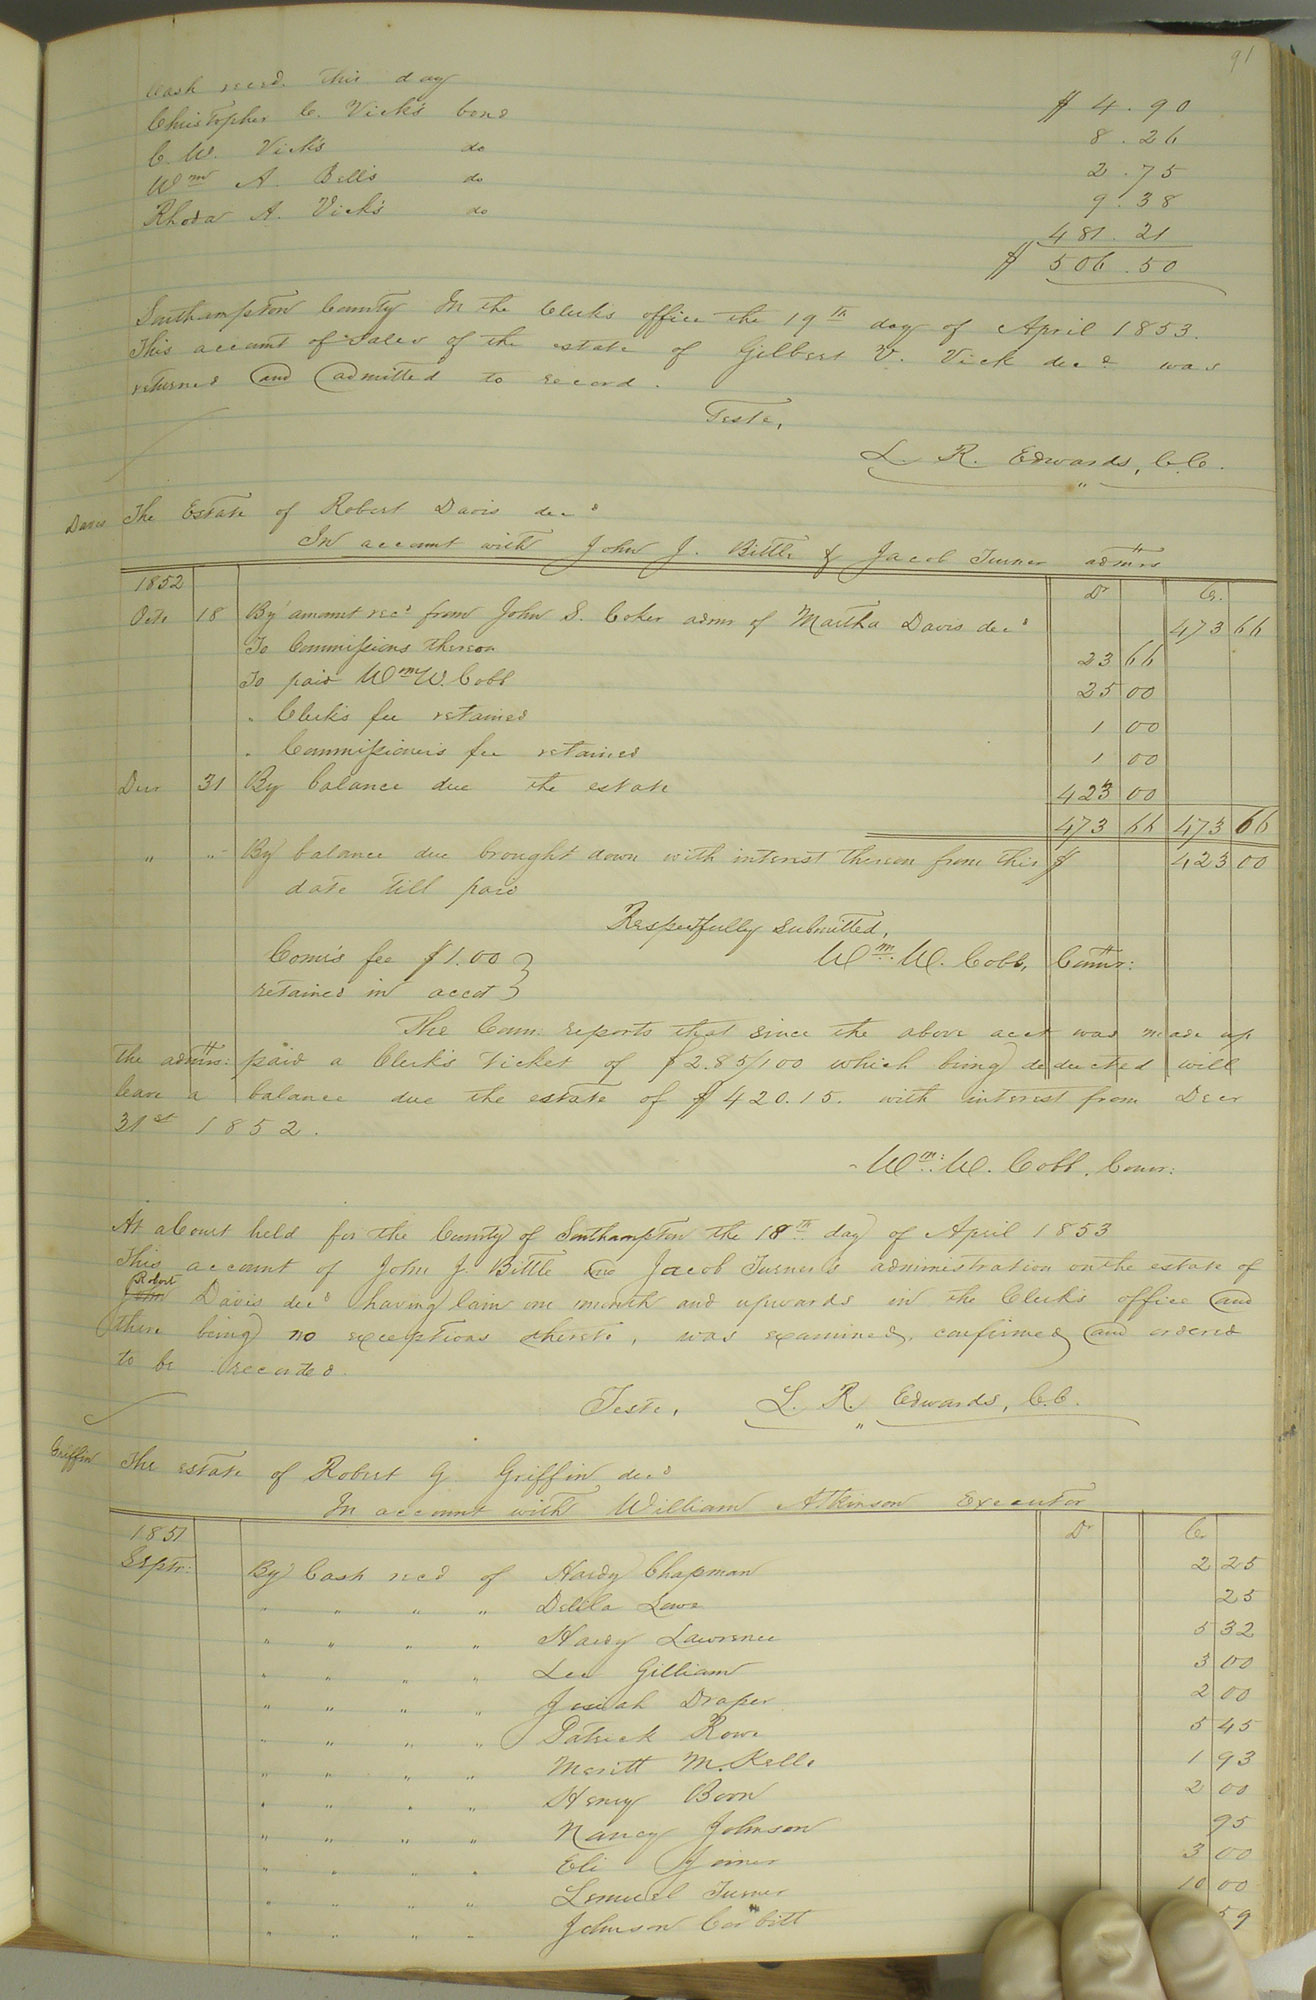 91
Cash recd. this day $ 4.90
Christopher C. Vick's bond 8.26
C. W. Vick's do 2.75
Wm A. Bell's do 9.38
Rhoda A. Vick's do 481.21
$ 506.50
Southampton County In the Clerk's office the 19th day of April 1853.
This account of Sales of the estate of Gilbert V. Vick decd was
returned and admitted to record.
Teste,
L. R. Edwards, C.C.
Davis The Estate of Robert Davis decd
In account with John J. Bittle & Jacob Turner admrs
1852 Dr Cr.
Octr 18 By amount recd from John S. Coker admr of Martha Davis decd 473 66
To Commissions thereon 23 66
To paid Wm W. Cobb 25 00
" Clerk's fee retained 1 00
" Commissioner's fee retained 1 00
Decr 31 By balance due the estate 423 00
473 66 473 66
" " By balance due brought down with interest thereon from this $ 423 00
date till paid
Respectfully submitted,
Com's fee $1.00 Wm. W. Cobb, Commr:
retained in acct
The Com. reports that since the above acct was made up
the admrs: paid a Clerk's Ticket of $2.85/100 which being deducted will
leave a balance due the estate of $420.15. with interest from Decr
31st 1852.
Wm: W. Cobb, Comr:
At a Court held for the County of Southampton the 18th day of April 1853
This account of John J. Bittle and Jacob Turner's administration on the estate of
Robert
John Davis decd having lain one month and upwards in the Clerk's office and
there being no exceptions thereto, was examined, confirmed and ordered
to be recorded.
Teste, L. R. Edwards, C.C.
Griffin The estate of Robert G. Griffin decd
In account with William Atkinson Executor
1851 Dr Cr
Septr: By Cash recd of Hardy Chapman 2 25
" " " " Delila Lowe 25
" " " " Hardy Lawrence 5 32
" " " " Lee Gilliam 3 00
" " " " Josiah Draper 2 00
" " " " Patrick Rowe 5 45
" " " " Meritt M. Kello 1 93
" " " " Henry Boon 2 00
" " " " Nancy Johnson 95
" " " " Eli Joiner 3 00
" " " " Lemuel Turner 10 00
" " " " Johnson Corbitt 59